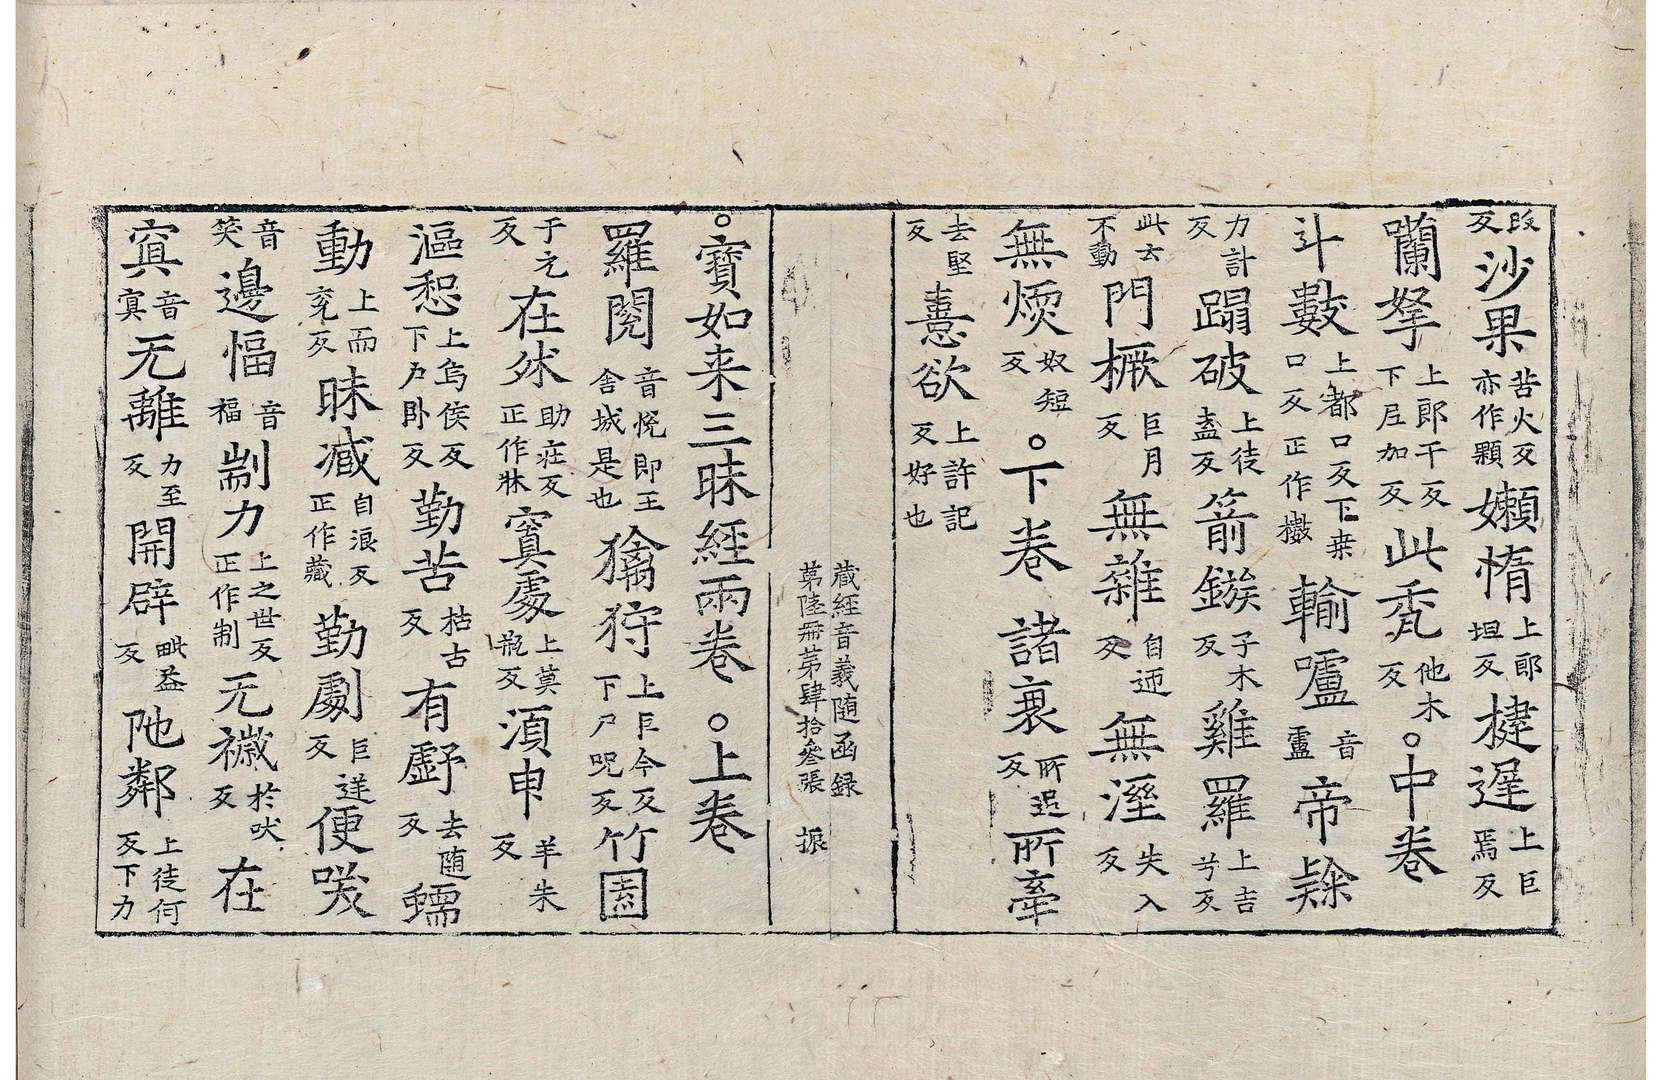 反沙果苦火反亦作顆嬾惰上郎坦反揵遲上巨焉反
囒拏上郎干反下尼加反此秃他木反○中卷
斗藪上都口反下桒口反正作擻輸嚧音盧帝𨸹
力計反蹋破上徒盍反箭鏃子木反雞羅上吉兮反
此云不動門橛巨月反無雜自迊反無溼失入反
無煗奴短反○下卷諸衰所追反所牽
去堅反憙欲上許記反好也
藏經音義随函録
第陸冊第肆拾叄張 振
○寶如来三昧經兩卷○上卷
羅閱音悅即王舍城是也㺌狩上巨今反下尸呪反竹園
于元反在牀助庄反正作牀寞處上莫瓶反湏申羊朱反
漚惒上烏侯反下戶卧反勤苦枯古反有虧去随反蠕
動上而兖反昧减自浪反正作藏勤劇巨逆反便㗛
音笑邊幅音福㓡力上之世反正作制无穢於吠反在
寘音寘无離力至反開辟毗益反阤鄰上徒何反下力